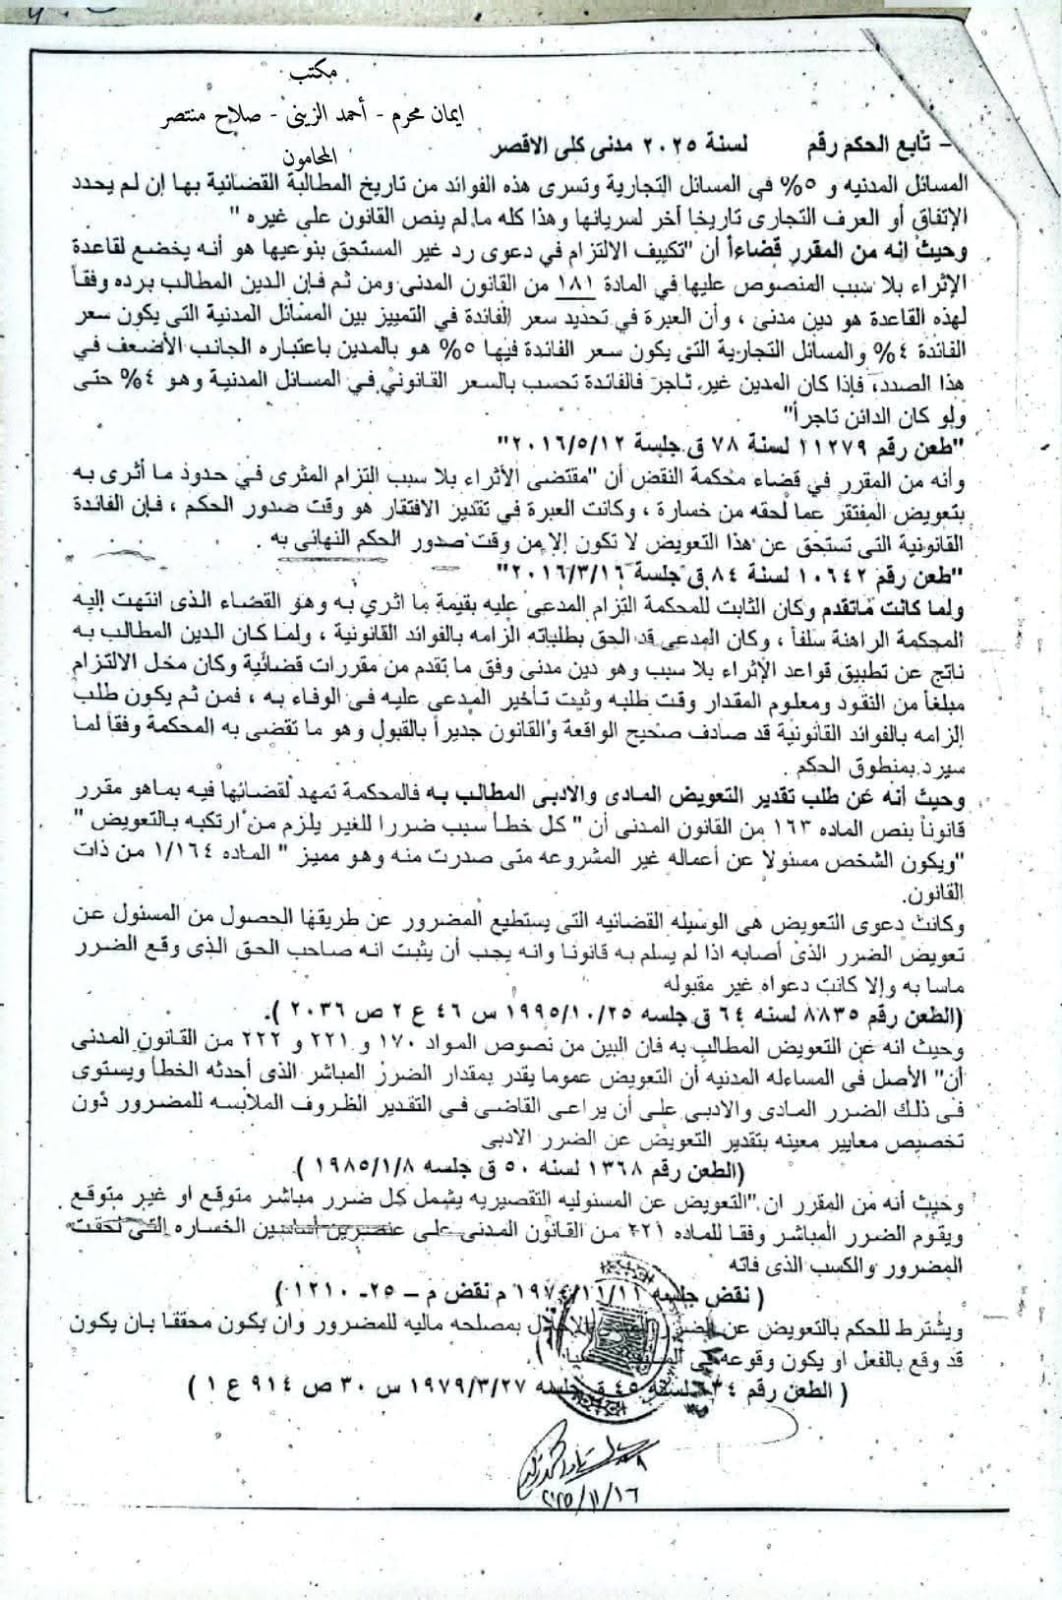 مكتب
ايمان محرم - أحمد الزينى - صلاح منتصر
المحامون
- تابع الحكم رقم لسنة ٢٠٢٥ مدنى كلى الاقصر
المسائل المدنيه و ٥% في المسائل التجارية وتسرى هذه الفوائد من تاريخ المطالبة القضائية بها إن لم يحدد
الإتفاق أو العرف التجارى تاريخا أخر لسريانها وهذا كله ما لم ينص القانون علي غيره "
وحيث انه من المقرر قضاءاً أن "تكييف الالتزام في دعوى رد غير المستحق بنوعيها هو أنه يخضع لقاعدة
الإثراء بلا سبب المنصوص عليها في المادة ١٨١ من القانون المدنى ومن ثم فإن الدين المطالب برده وفقاً
لهذه القاعدة هو دين مدنى ، وأن العبرة في تحديد سعر الفائدة في التمييز بين المسائل المدنية التى يكون سعر
الفائدة ٤% والمسائل التجارية التى يكون سعر الفائدة فيها ٥% هو بالمدين باعتباره الجانب الأضعف في
هذا الصدد، فإذا كان المدين غير تاجر فالفائدة تحسب بالسعر القانوني في المسائل المدنية وهو ٤% حتى
ولو كان الدائن تاجراً"
"طعن رقم ١١٢٧٩ لسنة ٧٨ ق جلسة ٢٠١٦/٥/١٢"
وأنه من المقرر في قضاء محكمة النقض أن "مقتضى الأثراء بلا سبب التزام المثرى في حدود ما أثرى به
بتعويض المفتقر عما لحقه من خسارة ، وكانت العبرة في تقدير الافتقار هو وقت صدور الحكم ، فإن الفائدة
القانونية التى تستحق عن هذا التعويض لا تكون إلا من وقت صدور الحكم النهائى به .
"طعن رقم ١٠٦٤٢ لسنة ٨٤ ق جلسة ٢٠١٦/٣/١٦"
ولما كانت ماتقدم وكان الثابت للمحكمة التزام المدعى عليه بقيمة ما اثري به وهو القضاء الذى انتهت إليه
المحكمة الراهنة سلفاً ، وكان المدعى قد الحق بطلباته الزامه بالفوائد القانونية ، ولما كان الدين المطالب به
ناتج عن تطبيق قواعد الإثراء بلا سبب وهو دين مدنى وفق ما تقدم من مقررات قضائية وكان محل الالتزام
مبلغاً من النقود ومعلوم المقدار وقت طلبه وثبت تأخير المدعى عليه فى الوفاء به ، فمن ثم يكون طلب
إلزامه بالفوائد القانونية قد صادف صحيح الواقعة والقانون جديراً بالقبول وهو ما تقضى به المحكمة وفقاً لما
سيرد بمنطوق الحكم .
وحيث أنه عن طلب تقدير التعويض المادى والادبى المطالب به فالمحكمة تمهد لقضائها فيه بماهو مقرر
قانوناً بنص الماده ١٦٣ من القانون المدنى أن " كل خطأ سبب ضررا للغير يلزم من ارتكبه بالتعويض "
"ويكون الشخص مسئولا عن أعماله غير المشروعه متى صدرت منه وهو مميز " الماده ١/١٦٤ من ذات
القانون.
وكانت دعوى التعويض هى الوسيله القضائيه التى يستطيع المضرور عن طريقها الحصول من المسئول عن
تعويض الضرر الذى أصابه اذا لم يسلم به قانونا وانه يجب أن يثبت انه صاحب الحق الذى وقع الضرر
ماسا به وإلا كانت دعواه غير مقبوله
(الطعن رقم ٨٨٣٥ لسنه ٦٤ ق جلسه ١٩٩٥/١٠/٢٥ س ٤٦ ع ٢ ص ٢٠٣٦ ).
وحيث انه عن التعويض المطالب به فان البين من نصوص المواد ١٧٠ و ٢٢١ و ٢٢٢ من القانون المدنى
أن" الأصل فى المساءله المدنيه أن التعويض عموما يقدر بمقدار الضرر المباشر الذى أحدثه الخطأ ويستوى
فى ذلك الضرر المادى والادبى على أن يراعى القاضى فى التقدير الظروف الملابسه للمضرور دون
تخصيص معايير معينه بتقدير التعويض عن الضرر الادبى
(الطعن رقم ١٣٦٨ لسنه ٥٠ ق جلسه ١٩٨٥/١/٨ ).
وحيث أنه من المقرر ان "التعويض عن المسئوليه التقصيريه يشمل كل ضرر مباشر متوقع او غير متوقع
ويقوم الضرر المباشر وفقا للماده ٢٢١ من القانون المدنى على عنصرين أساسين الخساره التى لحقت
المضرور والكسب الذى فاته
( نقض جلسه ١٩٧٤/١١/١١ م نقض م – ٢٥- ١٢١٠ )
ويشترط للحكم بالتعويض عن الضرر الإخلال بمصلحه ماليه للمضرور وان يكون محققا بان يكون
قد وقع بالفعل او يكون وقوعه
( الطعن رقم لسنه ٤٥ ق جلسه ١٩٧٩/٣/٢٧ س ٣٠ ص ٩١٤ ع ١ )
٢٠٢٥/١١/١٦